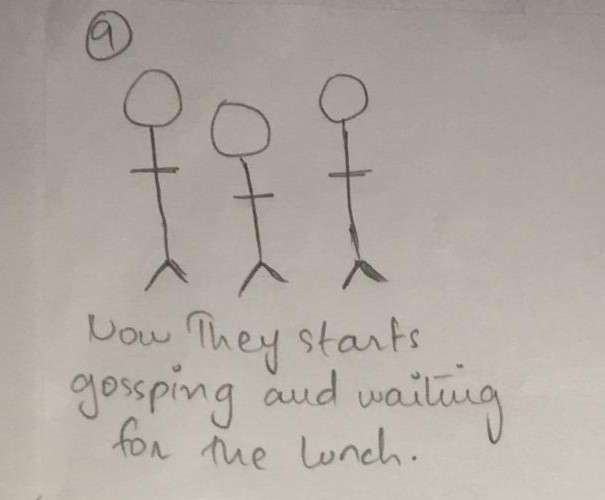 9
Now They starts
gossping and waiting
for the lunch.